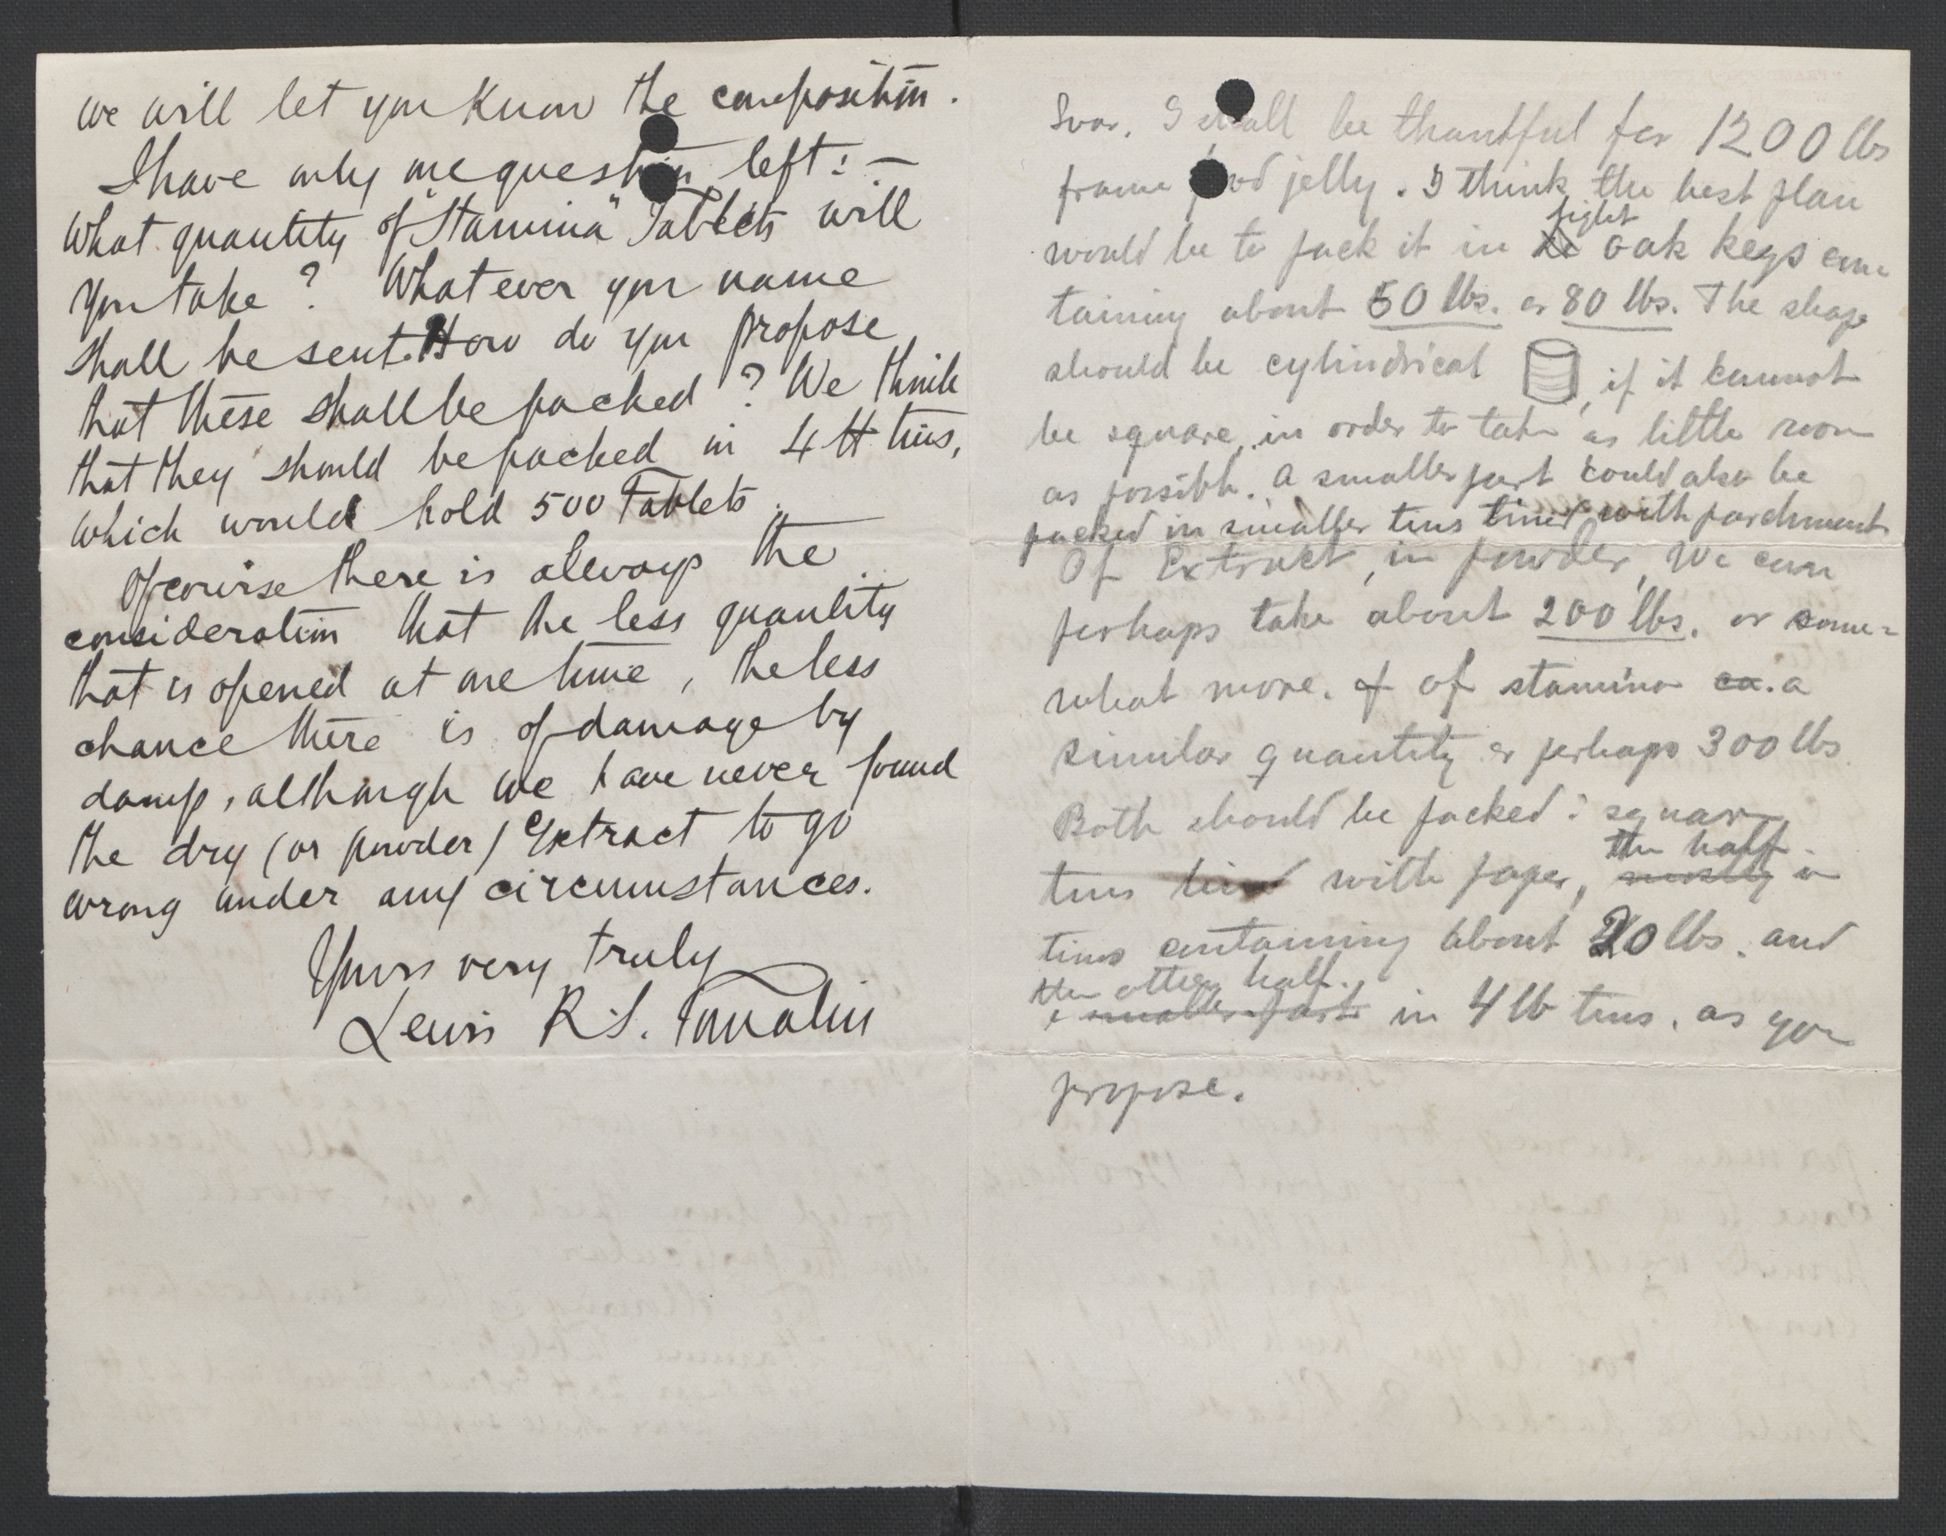 we will let you know the composition.
I have only one question left: —
What quantity of "Stamina" Tablets will
you take? Whatever you name
shall be sent. How do you propose
that these shall be packed? We think
that they should be packed in 4 lb tins,
which would hold 500 Tablets.
Of course there is always the
consideration that the less quantity
that is opened at one time, the less
chance there is of damage by
damp, although we have never found
the dry (or powder) Extract to go
wrong under any circumstances.
Yours very truly
Lewis R.S. Tomalin
Svar. I shall be thankful for 1200 lbs
frame food jelly. I think the best plan
would be to pack it in tight oak kegs con-
taining about 60 lbs. or 80 lbs. The shape
should be cylindrical, if it cannot
be square, in order to take as little room
as possible. A smaller part could also be
packed in smaller tins lined with parchment
Of Extract, in powder, we can
perhaps take about 200 lbs. or some=
what more. of of stamina ca. a
similar quantity or perhaps 300 lbs
Both should be packed: square
tins lined with paper, the half mostly in
tins containing about 20 lbs. and
the other half.
smaller part in 4 lb tins, as you
propose.